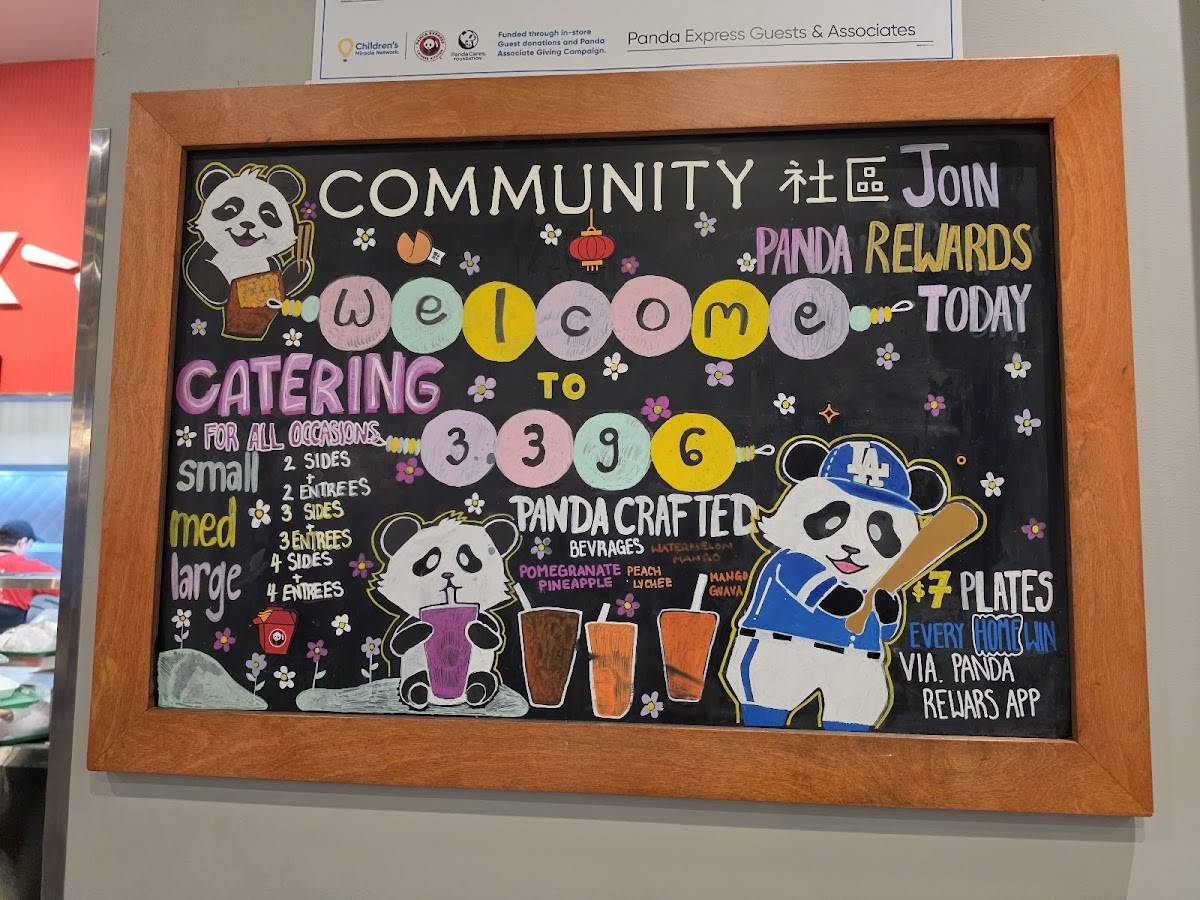 Children's
Miracle Network.
Panda Cares.
FOUNDATION
Funded through in-store
Guest donations and Panda
Associate Giving Campaign.
Panda Express Guests & Associates
COMMUNITY 社區
JOIN
PANDA REWARDS
TODAY
Welcome
TO
3396
CATERING
FOR ALL OCCASIONS
small 2 SIDES
+
2 ENTREES
med 3 SIDES
+
3 ENTREES
large 4 SIDES
+
4 ENTREES
PANDA CRAFTED
BEVRAGES
WATERMELON
MANGO
POMEGRANATE
PINEAPPLE
PEACH
LYCHEE
MANGO
GUAVA
LA
$7 PLATES
EVERY HOME WIN
VIA. PANDA
REWARS APP